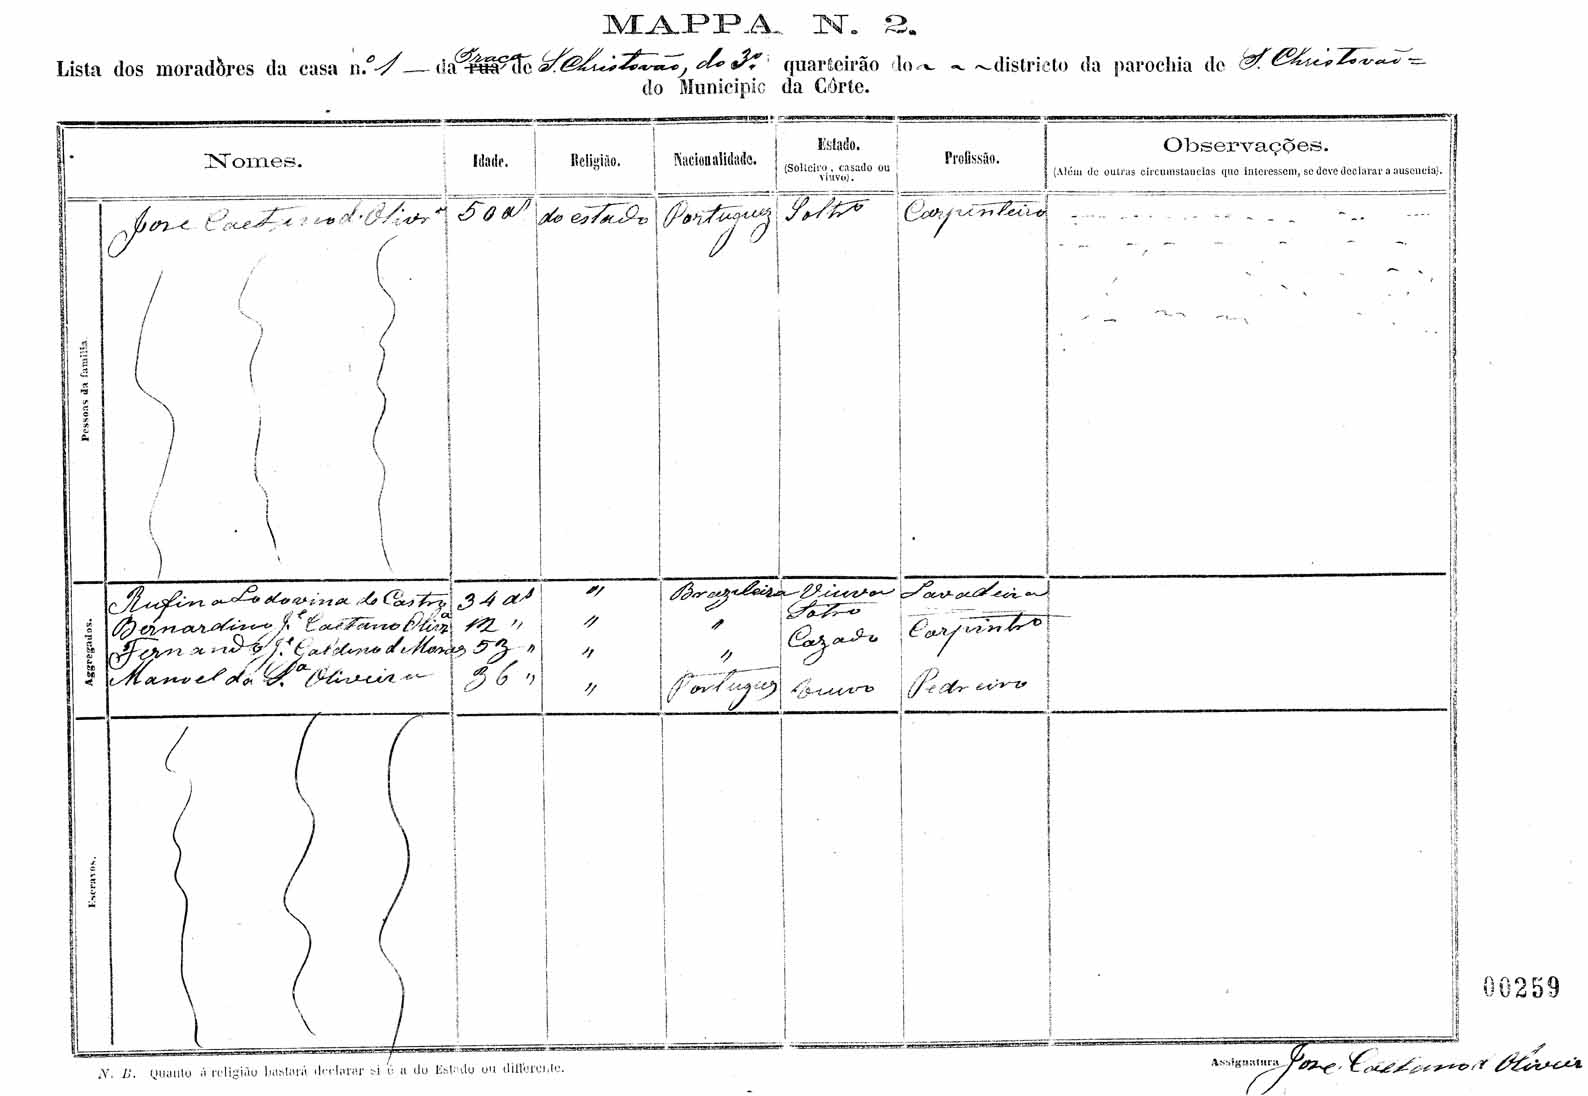 MAPPA N. 2.
Lista dos moradôres da casa n.º 1 — da Praça rua de S. Christovão, do 3º quarteirão do ~ ~ ~ districto da parochia de S. Christovão =
do Municipio da Côrte.
Nomes. Idade. Religião. Nacionalidade. Estado. (Solteiro, casado ou viuvo). Profissão. Observações. (Além de outras circumstancias que interessem, se deve declarar a ausencia).
Pessoas da familia.
Jose Caetano d' Olivrª 50 aˢ do estado Portuguez Soltrº Carpinteiro
Aggregados.
Rufina Lodovina de Castro 34 aˢ " Brazileira Viuva Lavadeira
Bernardino J.ᵉ Caetano Olivrª 12 " " " Sotrº Carpintrº
Fernando J.ᵉ Galdino d Moraes 53 " " " Cazado
Manoel da S.ª Oliveira 36 " " Portuguez Viuvo Pedreiro
Escravos.
00259
N. B. Quanto á religião bastará declarar si é a do Estado ou differente.
Assignatura Jose Caetano d' Oliveir